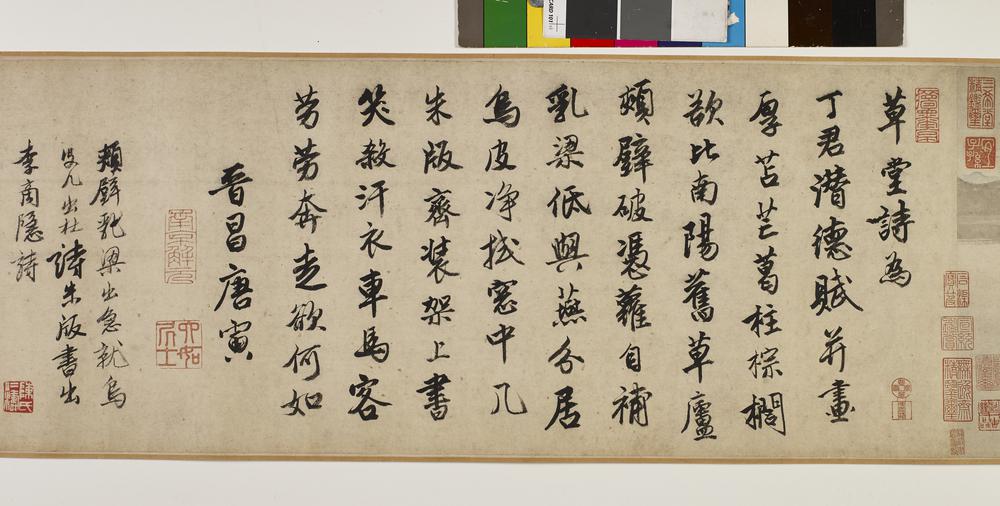 草堂詩為
丁君潛德賦并畫
厚苫茫葛柱棕櫚
欲比南陽舊草廬
頰壁破憑蘿自補
乳梁低與燕分居
烏皮净拭窓中几
朱版齊裝架上書
笑殺汗衣車馬客
勞勞奔走欲何如
晉昌唐寅
南京解元
六如居士
頰壁乳梁出急就烏
皮几出杜詩朱版書出
李商隱詩